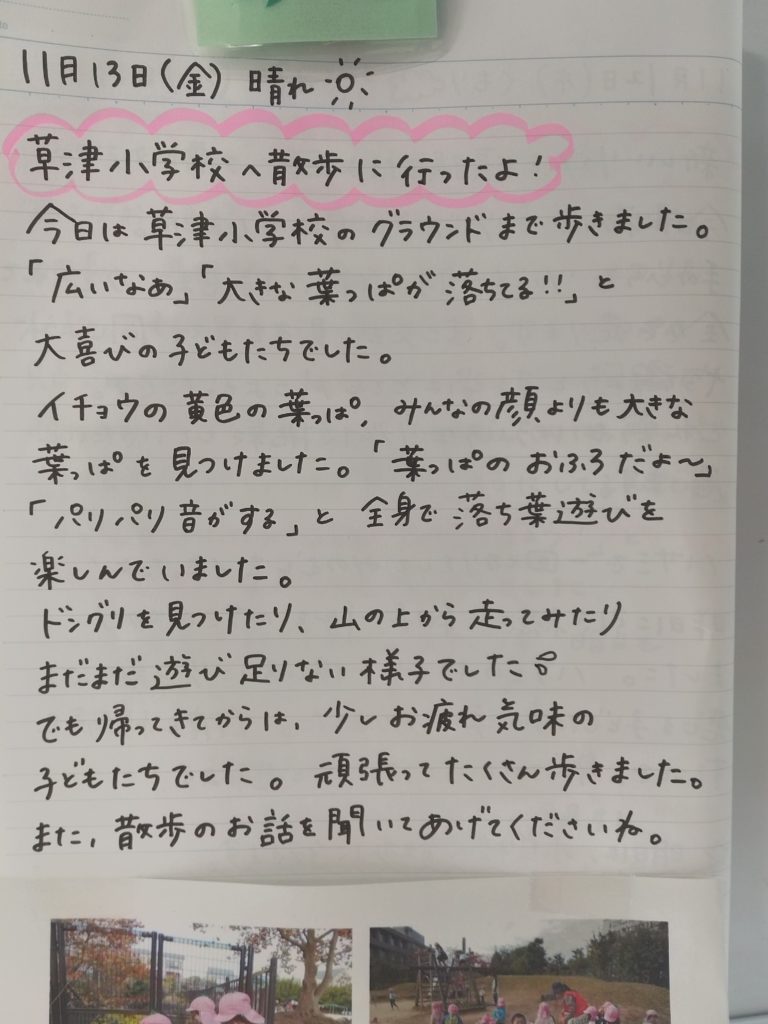 11月13日(金) 晴れ
草津小学校へ散歩に行ったよ!
今日は草津小学校のグラウンドまで歩きました。
「広いなぁ」「大きな葉っぱが落ちてる!!」と
大喜びの子どもたちでした。
イチョウの黄色の葉っぱ、みんなの顔よりも大きな
葉っぱを見つけました。「葉っぱのおふろだよ〜」
「パリパリ音がする」と全身で落ち葉遊びを
楽しんでいました。
ドングリを見つけたり、山の上から走ってみたり
まだまだ遊び足りない様子でした。
でも帰ってきてからは、少しお疲れ気味の
子どもたちでした。頑張ってたくさん歩きました。
また、散歩のお話を聞いてあげてくださいね。